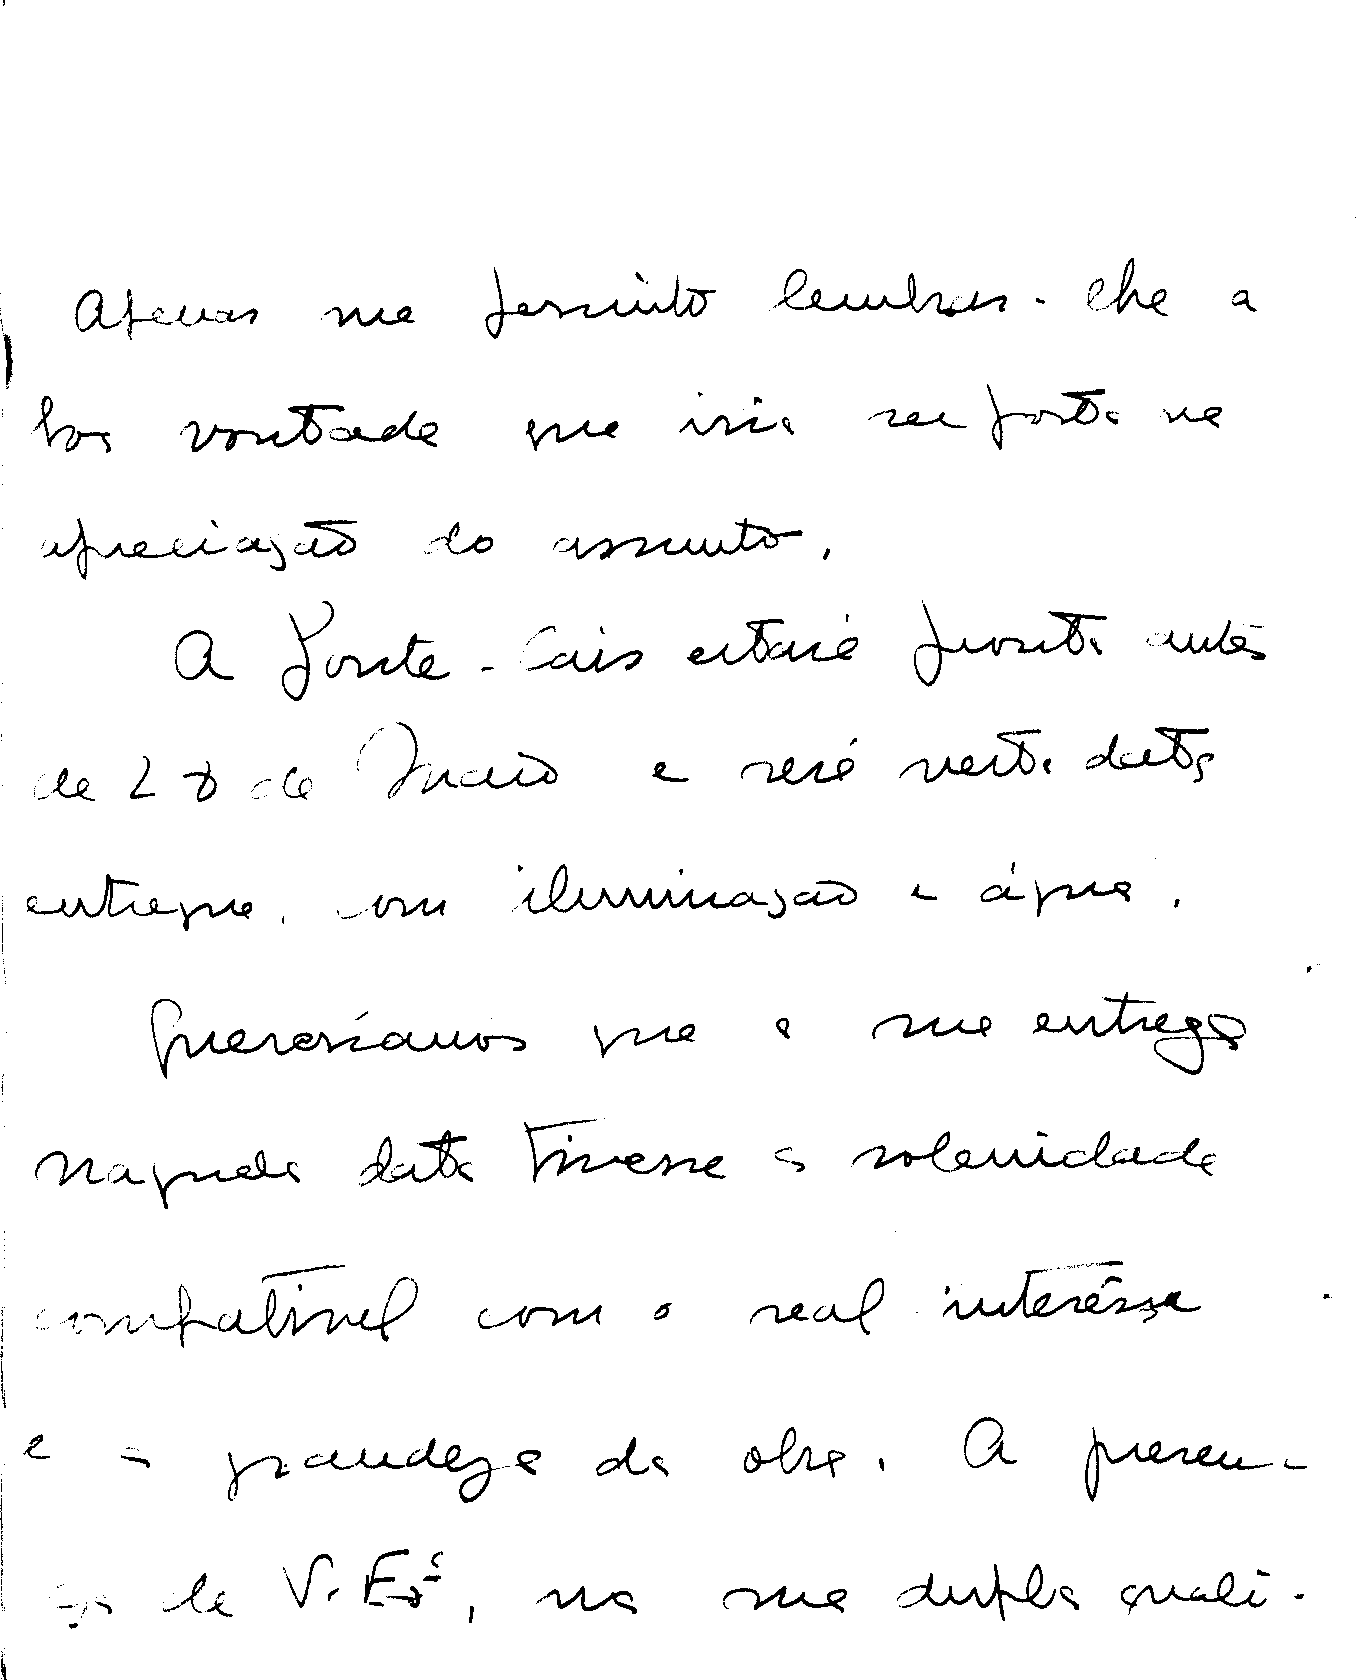 Apenas me permito lembrar-lhe a
boa vontade que iria ser posta na
apreciação do assunto.
A Ponte-Cais estará pronta antes
de 28 de Maio e será nesta data
entregue, com iluminação e água.
Quereríamos que a sua entrega
naquela data tivesse a solenidade
compatível com o real interêsse
e a grandeza da obra. A presen-
ça de V. Exª, na sua dupla quali-